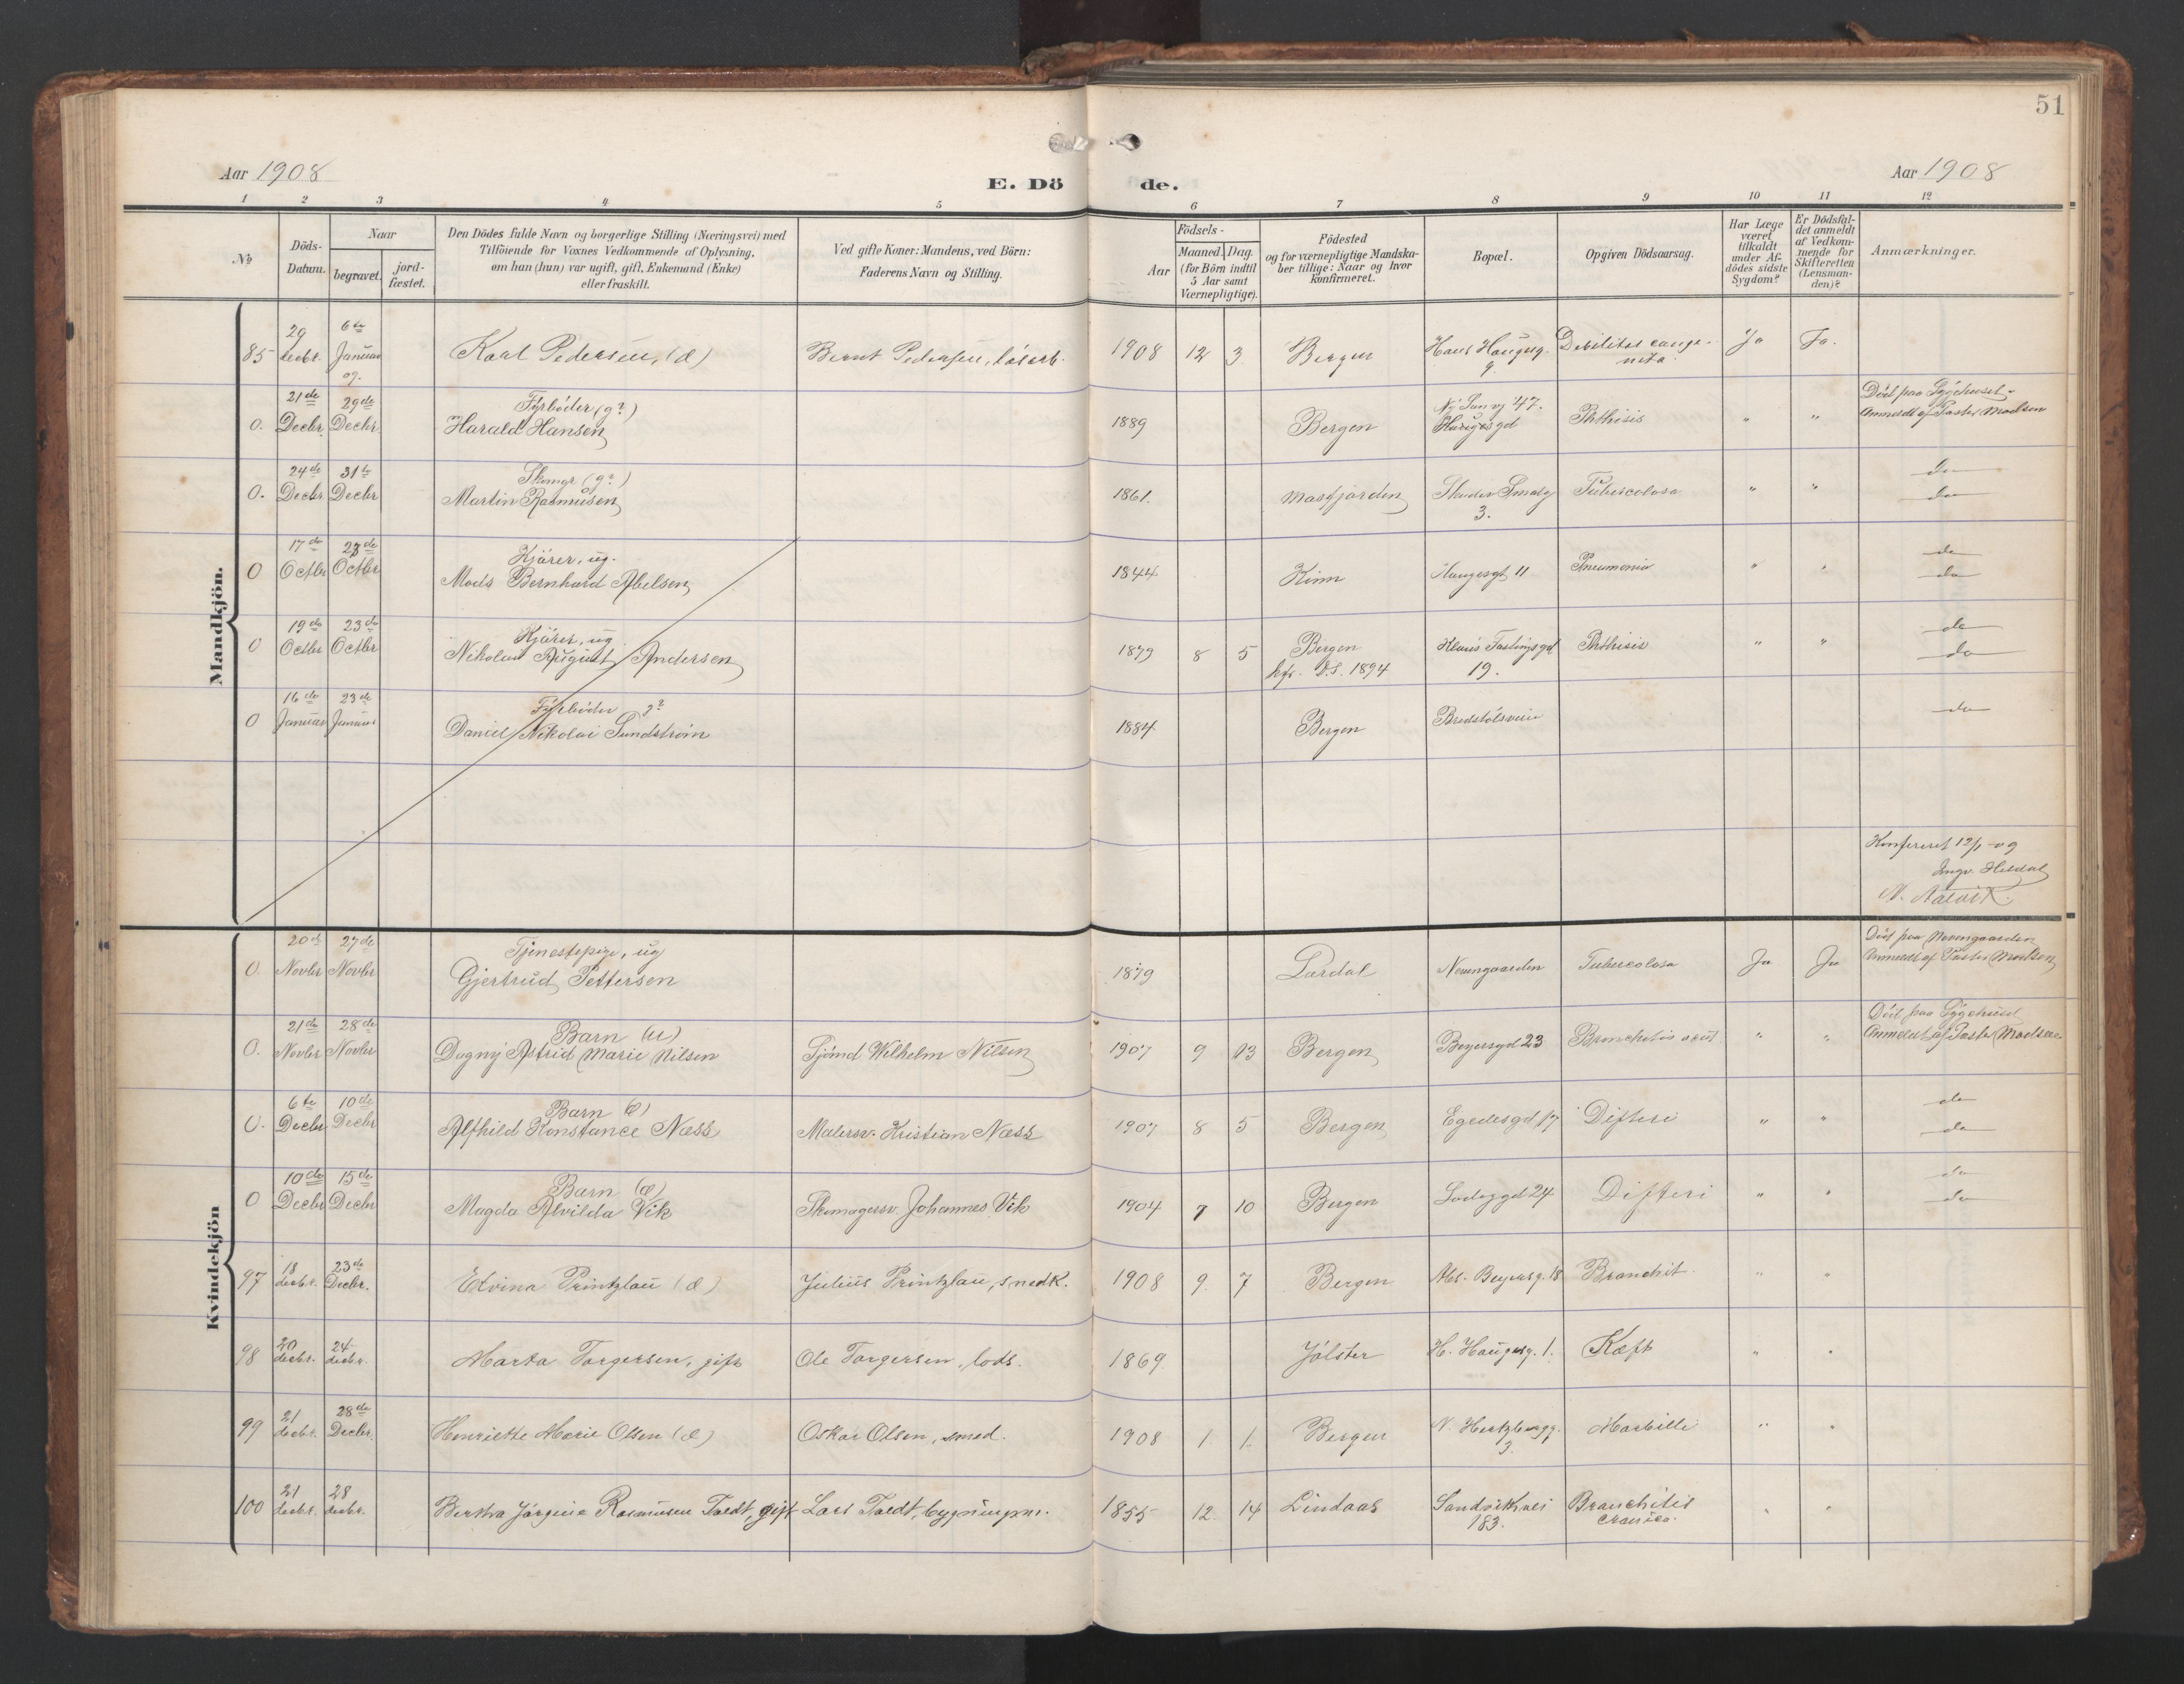 51
Aar 1908
E. Dö de.
Aar 1908
1 2 3 4 5 6 7 8 9 10 11 12
No
Döds-
Datum.
Naar
begravet.
jord-
fæstet.
Den Dödes fulde Navn og borgerlige Stilling (Næringsvei) med
Tilföiende for Voxnes Vedkommende af Oplysning,
om han (hun) var ugift, gift, Enkemand (Enke)
eller fraskilt.
Ved gifte Koner: Mandens, ved Börn:
Faderens Navn og Stilling.
Födsels-
Aar
Maaned. Dag.
(for Börn indtil
5 Aar samt
Værnepligtige).
Födested
og for værnepligtige Mandska-
ber tillige: Naar og hvor
konfirmeret.
Bopæl.
Opgiven Dödsaarsag.
Har Læge
været
tilkaldt
under Af-
dödes sidste
Sygdom?
Er Dödsfal-
det anmeldt
af Vedkom-
mende for
Skifteretten
(Lensman-
den)?
Anmærkninger.
Mandkjön.
85 29 decbr. 6te Januar 09. Karl Pedersen, (æ) Bernt Pedersen, løsarb. 1908 12 3 Bergen Hans Haugesg. 9. Debilitas congenita. Ja Ja.
0. 21de Decbr. 29de Decbr Fyrbøder (g?)
Harald Hansen 1889 Bergen 47. Haugesgd Phthisis " " Död paa Sygehuset
Anmeldt af Pastor Madsen
0. 24de Decbr 31te Decbr Skomgr (g?)
Martin Rasmusen 1861. Masfjorden Smalg 3. Tubercolosa " " do
do
0 17de Octbr 23de Octbr Kjører, ug.
Mads Bernhard Abelsen 1844 Kinn Haugesgt 11 Pneumonia " " do
do
0 19de Octbr 23de Octbr Kjører, ug
Nikolai August Andersen 1879 8 5 Bergen
kfr. D.S. 1894 Klaus Fastingsgd 19. Phthisis " " do
do
0 16de Januar 23de Januar Fyrbøder g?
Daniel Nikolai Sundstrøm 1884 Bergen Bredstølsveien do
Konfereret 12/1-09
Ingv. Heldal
Kvindekjön
0 20de Novbr 27de Novbr Tjenestepige, ug
Gjertrud Pettersen 1879 Lærdal Nevengaarden Tubercolosa Ja Ja Död paa Nevengaarden
Anmeldt af Pastor Madsen
0. 21de Novbr 28de Novbr Barn (u)
Dagny Astrid Marie Nilsen Sjömd Wilhelm Nilsen 1907 9 13 Bergen Beyersgd 23 Bronchitis acut " " Död paa Sygehuset
Anmeldt af Pastor Madsen
0. 6te Decbr 10de Decbr Barn (æ)
Alfhild Konstance Næss Malersv. Kristian Næss 1907 8 5 Bergen Egedesgd 17 Difteri " " do
do
0 10de Decbr 15de Decbr Barn (æ)
Magda Alvilda Vik Skomagersv. Johannes Vik 1904 7 10 Bergen Ladegd 24 Difteri " " do
do
97 18 decbr. 23de Decbr. Edvina Printzlau (æ) Julius Printzlau, snedk. 1908 9. 7 Bergen Abs. Beyersg. 18 Bronchit. " "
98 20 decbr. 24 decbr. Marta Torgersen, gift Ole Torgersen, lods. 1869. Jølster H. Haugesg. 1. Kræft " "
99 21 decbr. 28de Decbr. Henriette Marie Olsen (æ) Oskar Olsen, smed. 1908 1. 1. Bergen N. Hertzbergg. 3. Morbilli " "
100 21 decbr. 28 decbr. Bertha Jørgine Rasmusen Toldt, gift Lars Toldt, bygningssn. 1855 12. 14 Lindaas Sandviksvei 183. Bronchitis cronica. " "